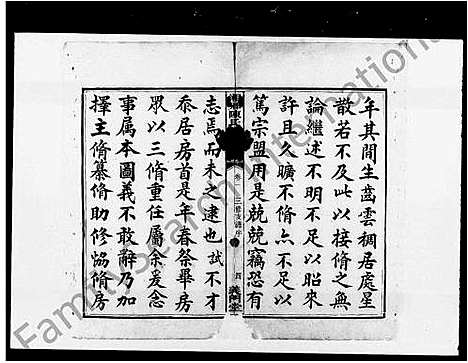 年其間生齒雲稠居處星
散若不及此以接脩之無
論繼述不明不足以昭來
許且久曠不脩亦不足以
篤宗盟用是兢兢竊恐有
志焉而未之逮也試不才
忝居房首是年春祭畢房
衆以三脩重任屬余爰念
事属本圖義不敢辭乃加
擇主脩纂脩助修協脩房
陳氏
義門堂
FamilySearch International